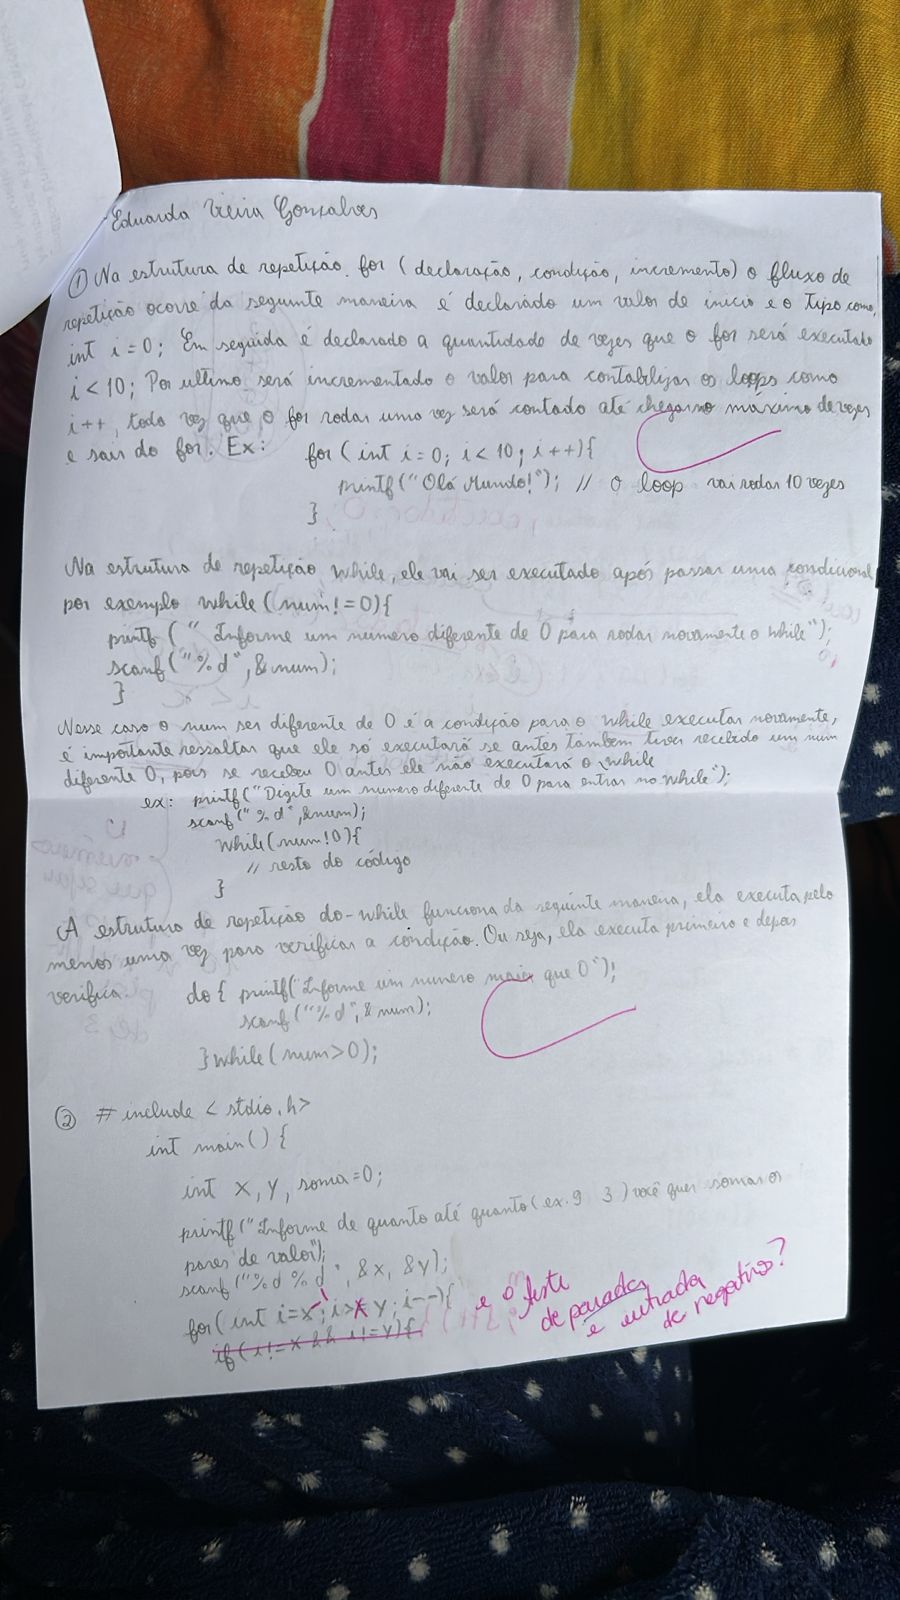 Eduarda Vieira Gonsalves
① Na estrutura de repetição for (declaração, condição, incremento) o fluxo de
repetição ocorre da seguinte maneira é declarado um valor de inicio e o tipo como,
int i = 0; Em seguida é declarado a quantidade de vezes que o for será executado
i < 10; Por ultimo será incrementado o valor para contabilizar os loops como
i++, toda vez que o for rodar uma vez será contado até chegar no máximo de vezes
e sair do for. Ex: for (int i = 0; i < 10; i++){
printf("Olá Mundo!"); // o loop vai rodar 10 vezes
}
Na estrutura de repetição while, ele vai ser executado após passar uma condicional
por exemplo while (num != 0){
printf (" Informe um numero diferente de 0 para rodar novamente o while");
scanf("%d", &num);
}
Nesse caso o num ser diferente de 0 é a condição para o while executar novamente,
é importante ressaltar que ele só executará se antes também tiver recebido um num
diferente 0, pois se recebeu 0 antes ele não executará o while
ex: printf("Digite um numero diferente de 0 para entrar no while");
scanf("%d", &num);
while (num!0){
// resto do código
}
A estrutura de repetição do-while funciona da seguinte maneira, ela executa pelo
menos uma vez para verificar a condição. Ou seja, ela executa primeiro e depois
verifica. do { printf("Informe um numero maior que 0");
scanf("%d", &num);
} while (num > 0);
② #include <stdio.h>
int main() {
int x, y, soma=0;
printf("Informe de quanto até quanto (ex. 9 3) você quer somar os
pares de valor");
scanf("%d %d", &x, &y);
for (int i = x; i > y; i--){
if (i != x && i != y){
e o teste
de parada
e entrada
de negativos?